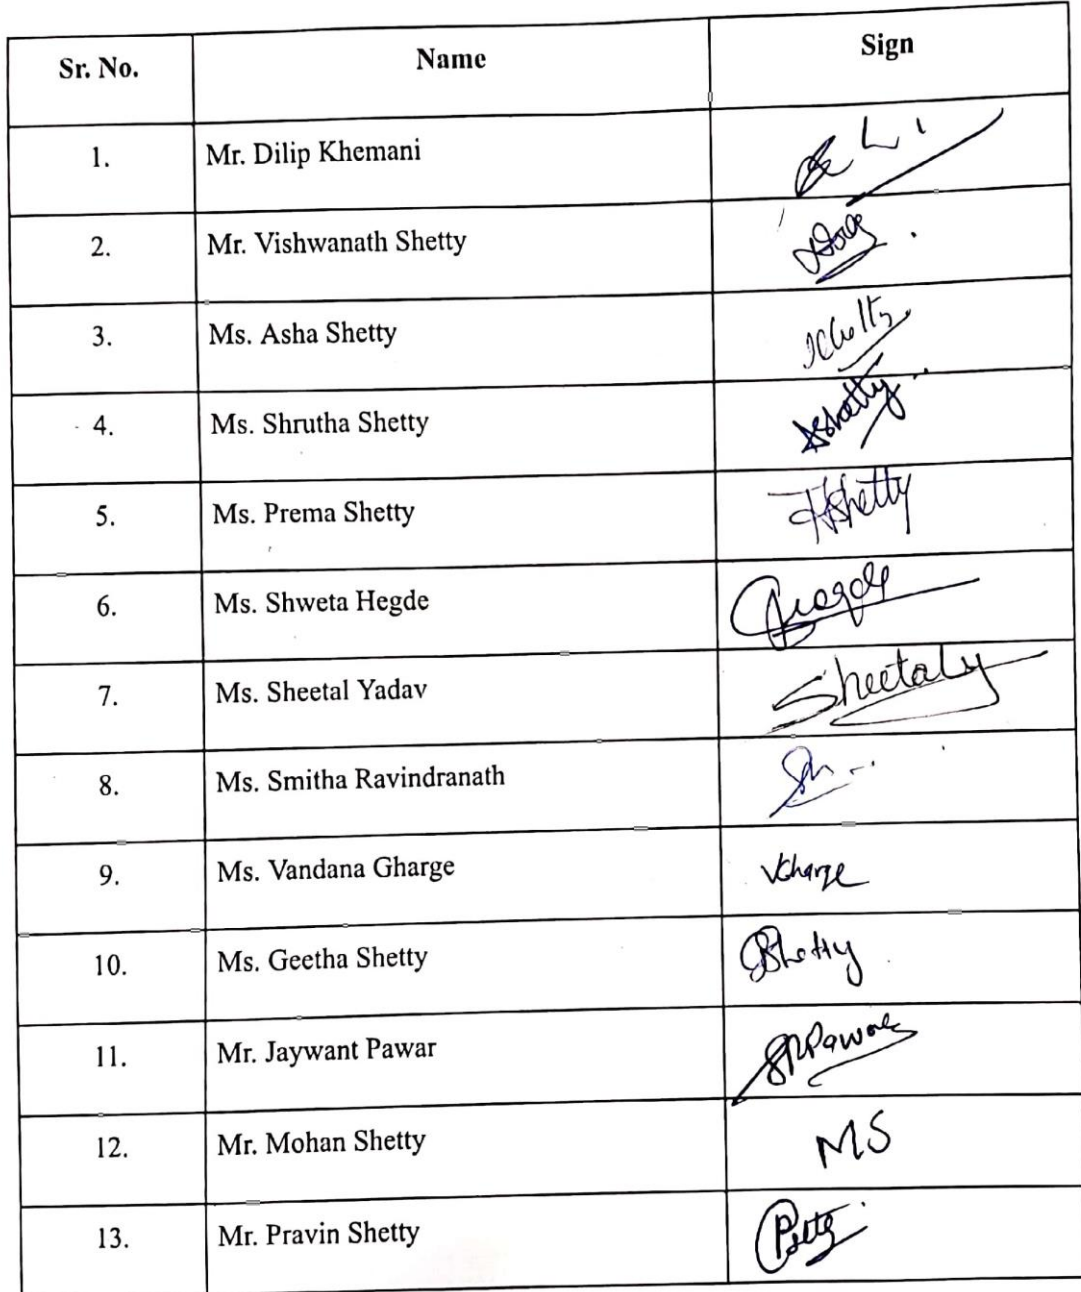 Sr. No. Name Sign
1. Mr. Dilip Khemani
2. Mr. Vishwanath Shetty
3. Ms. Asha Shetty
4. Ms. Shrutha Shetty AShetty
5. Ms. Prema Shetty Shetty
6. Ms. Shweta Hegde
7. Ms. Sheetal Yadav SheetalY
8. Ms. Smitha Ravindranath
9. Ms. Vandana Gharge VGharge
10. Ms. Geetha Shetty GShetty
11. Mr. Jaywant Pawar
12. Mr. Mohan Shetty MS
13. Mr. Pravin Shetty